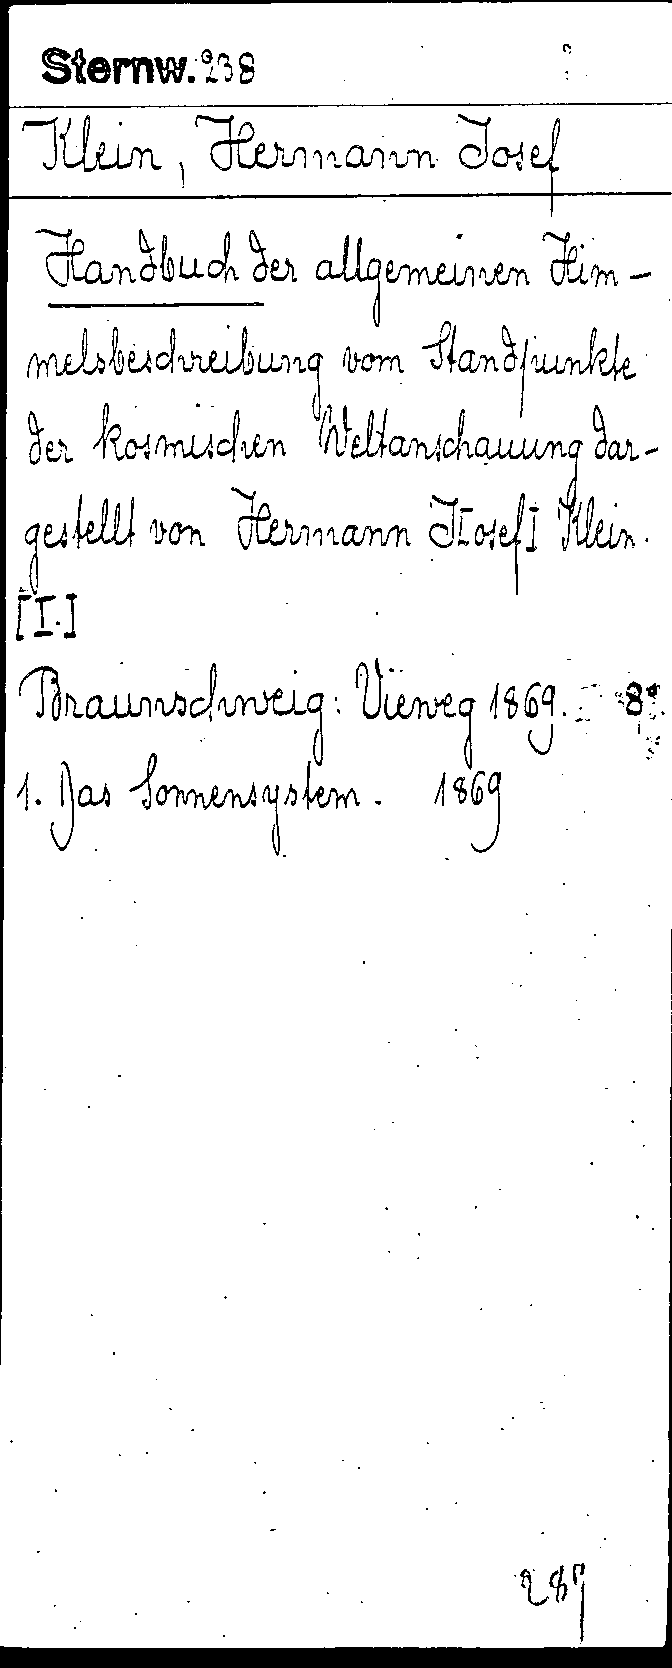 Sternw. 238
Klein, Hermann Josef
Handbuch der allgemeinen Him-
melsbeschreibung vom Standpunkte
der kosmischen Weltanschauung dar-
gestellt von Hermann J[osef] Klein.
[I.]
Braunschweig: Vieweg 1869. 8°
1. Das Sonnensystem. 1869
287